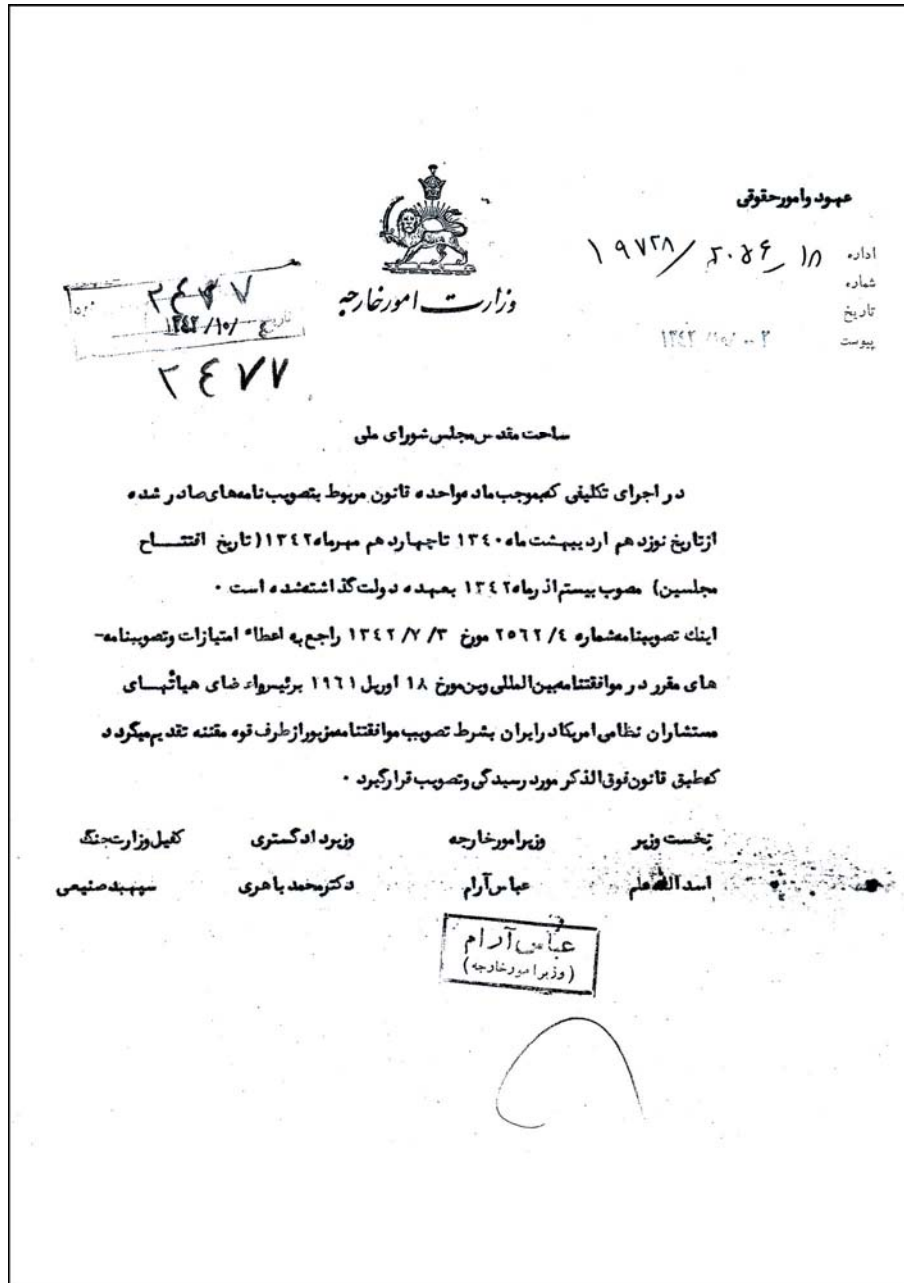 عهود وامورحقوقی
اداره ۱۸
شماره ۱۹۷۲۸
تاریخ
پیوست
۱۳۴۲/۱۰/۰۰۲
وزارت امورخارجه
۲۴۷۷
تاریخ ۱۳۴۲/۱۰/
۲۴۷۷
ساحت مقدس مجلس شورای ملی
در اجرای تکلیفی که بموجب ماده واحده قانون مربوط بتصویب نامه های صادر شده
از تاریخ نوزدهم اردیبهشت ماه ۱۳۴۰ تا چهاردهم مهرماه ۱۳۴۲ (تاریخ افتتـــاح
مجلسین) مصوب بیستم آذرماه ۱۳۴۲ بعهده دولت گذاشته شده است ۰
اینک تصویبنامه شماره ۲۵۶۲/۴ مورخ ۱۳۴۲/۷/۳ راجع به اعطاء امتیازات وتصویبنامه-
های مقرر در موافقتنامه بین المللی وین مورخ ۱۸ اوریل ۱۹۶۱ برئیس واعضای هیأتهـــای
مستشاران نظامی امریکا در ایران بشرط تصویب موافقتنامه مزبور از طرف قوه مقننه تقدیم میگردد
که طبق قانون فوق الذکر مورد رسیدگی وتصویب قرارگیرد ۰
نخست وزیر وزیر امورخارجه وزیر دادگستری کفیل وزارت جنگ
اسدالله علم عباس آرام دکتر محمد باهری سپهبد صنیعی
عباس آرام
(وزیر امور خارجه)